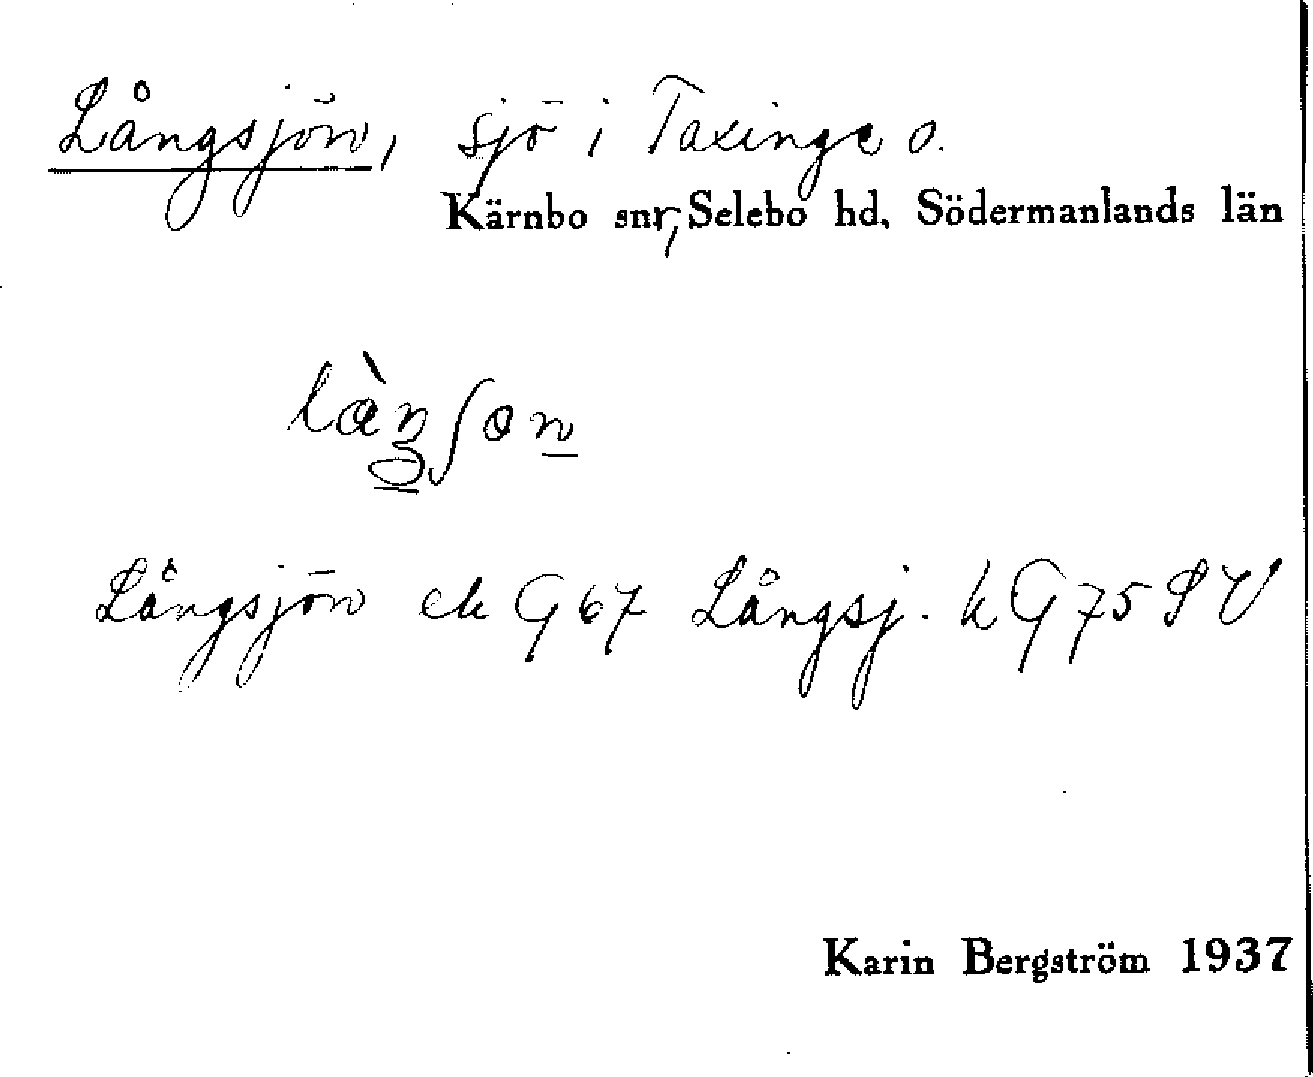 Långsjön, sjö i Taxinge o.
Kärnbo snr, Selebo hd, Södermanlands län
Långsjön ek G 67 Långsj. k G 75 SV
Karin Bergström 1937